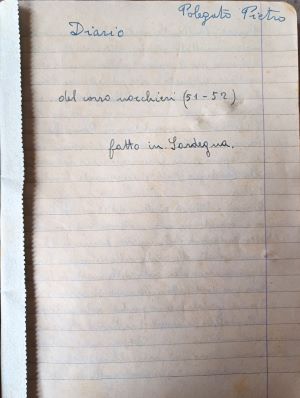 Poleguto Pietro
Diario
del corso nocchieri (51-52)
fatto in Sardegna.